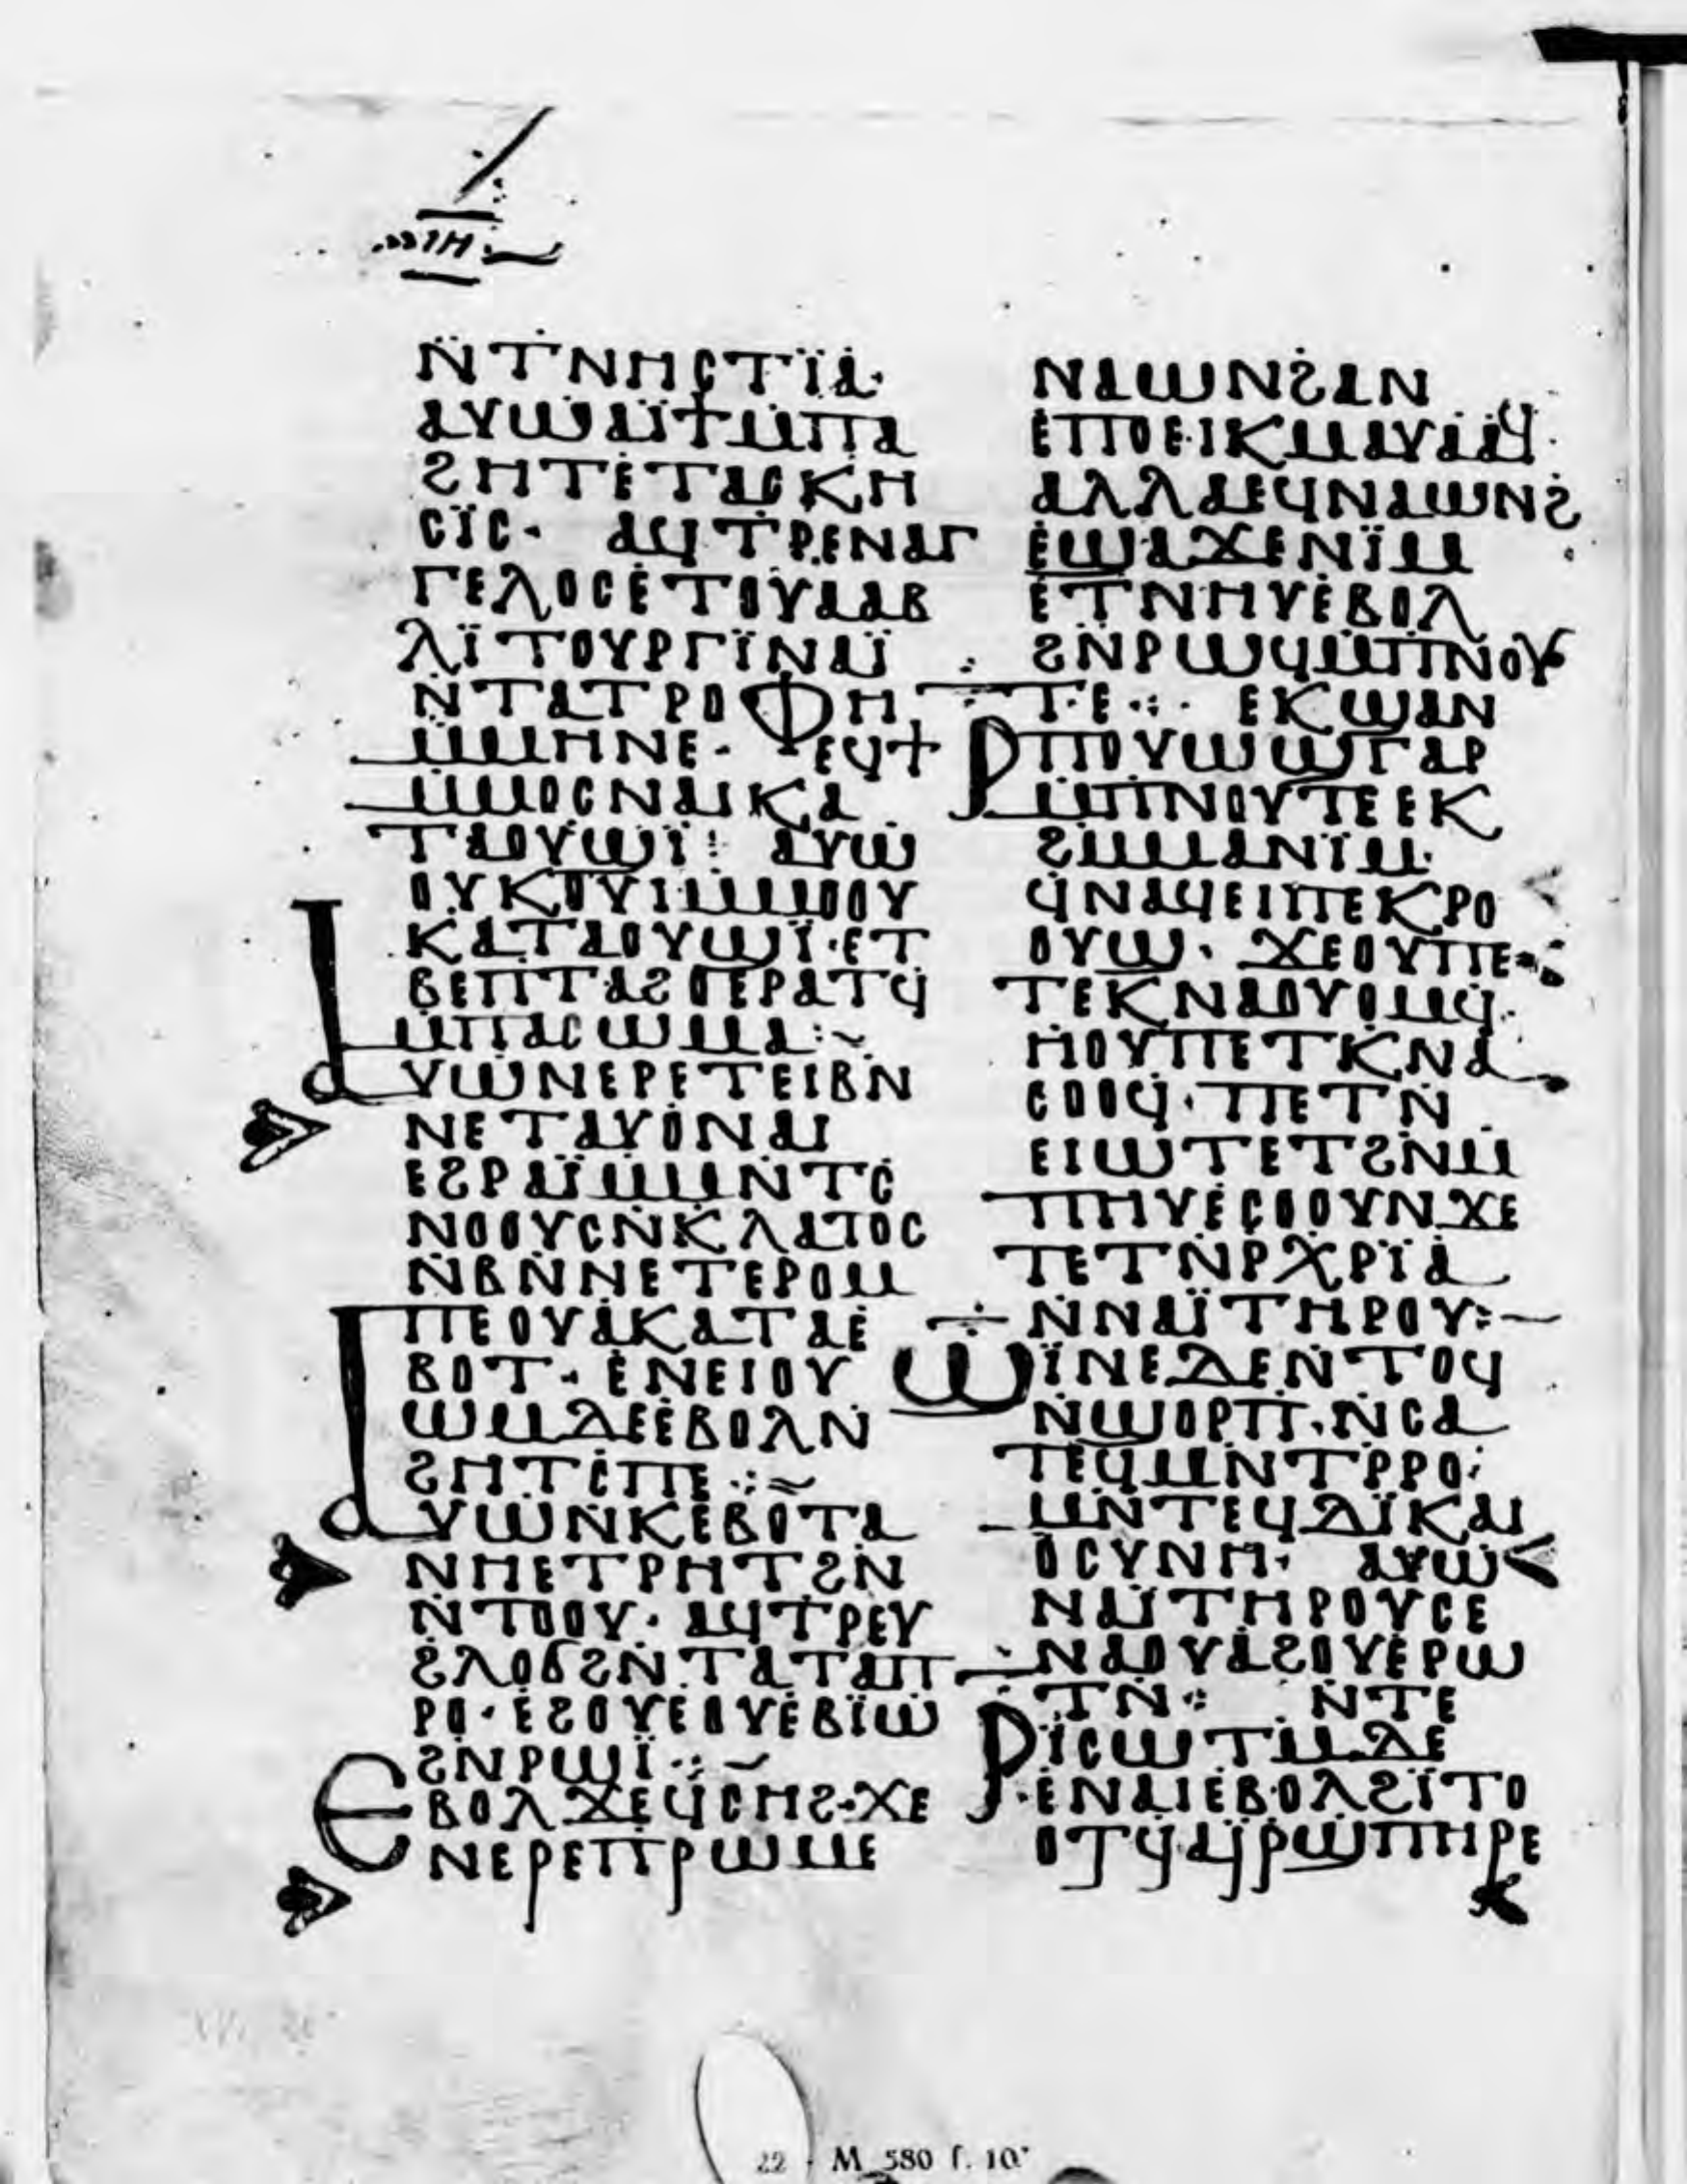 ⲓⲏ
ⲛ̇ⲧ̇ⲛⲏⲥⲧⲓ̈ⲁ̇·
ⲁⲩⲱⲁⲓ̈ϯⲙ̇ⲡⲁ
ϩⲏⲧⲉ̇ⲧⲁⲥⲕⲏ
ⲥⲓ̈ⲥ· ⲁϥⲧ̇ⲣⲉⲛⲁⲅ
ⲅⲉⲗⲟⲥⲉ̇ⲧⲟⲩⲁⲁⲃ
ⲗⲓ̈ⲧⲟⲩⲣⲅⲓ̈ⲛⲁⲓ̈
ⲛ̇ⲧⲁⲧⲣⲟⲫⲏ
ⲙ̇ⲙⲏⲛⲉ· ⲉϥϯ
ⲙ̇ⲙⲟⲥⲛⲁⲓⲕⲁ
ⲧⲁⲟⲩϣⲓ̈: ⲁⲩⲱ
ⲟⲩⲕⲟⲩⲓⲙ̇ⲙⲟⲟⲩ
ⲕⲁⲧⲁⲟⲩϣⲓ̈·ⲉⲧ
ⲃⲉⲡⲧⲁϩⲟⲉⲣⲁⲧϥ
ⲙ̇ⲡⲁⲥⲱⲙⲁ:~
ⲁⲩⲱⲛⲉⲣⲉⲧⲉⲓⲃⲛ
ⲛⲉⲧⲁⲩⲟ̇ⲛⲁⲓ
ⲉϩⲣⲁⲓ̈ⲙ̇ⲙⲛⲧⲥ̇
ⲛⲟⲟⲩⲥⲛ̇ⲕⲗⲁⲧⲟⲥ
ⲛ̇ⲃⲛ̇ⲛⲉⲧⲉⲣⲟⲙ
ⲡⲉⲟⲩⲁ̇ⲕⲁⲧⲁⲉ̇
ⲃⲟⲧ·ⲉ̇ⲛⲉⲓⲟⲩ
ⲱⲙⲇⲉⲉ̇ⲃⲟⲗⲛ̇
ϩⲏⲧⲥ̇ⲡⲉ⁘~
ⲁⲩⲱⲛ̇ⲕⲉⲃⲟⲧⲁ
ⲛⲏⲉⲧⲣⲏⲧϩⲛ
ⲛ̇ⲧⲟⲟⲩ·ⲁϥⲧⲣⲉⲩ
ϩⲗⲟϭϩⲛ̇ⲧⲁⲧⲁⲡ
ⲣⲟ·ⲉ̇ϩⲟⲩⲉⲟⲩⲉ̇ⲃⲓ̈ⲱ
ϩⲛⲣⲱⲓ̈⁘~
ⲉⲃⲟⲗϫⲉϥⲥⲏϩ·ϫⲉ
ⲛⲉⲣⲉⲡⲣⲱⲙⲉ
ⲛⲁⲱⲛϩ̇ⲁⲛ
ⲉ̇ⲡⲟⲉⲓⲕⲙⲁⲩⲁⲁϥ·
ⲁⲗⲗⲁⲉϥⲛⲁⲱⲛϩ̇
ⲉ̇ϣⲁϫⲉⲛⲓ̈ⲙ
ⲉⲧ̇ⲛⲏⲩⲉ̇ⲃⲟⲗ
ϩⲛ̇ⲣⲱϥⲙ̇ⲡⲛⲟⲩ
ⲧⲉ⁘ ⲉⲕϣⲁⲛ
ⲣⲡⲟⲩⲱϣⲅⲁⲣ
ⲙ̇ⲡⲛⲟⲩⲧⲉⲉⲕ
ϩⲙ̇ⲙⲁⲛⲓ̈ⲙ·
ϥⲛⲁϥⲉⲓⲡⲉⲕⲣⲟ
ⲟⲩϣ· ϫⲉⲟⲩⲡⲉ
ⲧⲉⲕⲛⲁⲟⲩⲟⲙϥ·
ⲏⲟⲩⲡⲉⲧⲕⲛⲁ
ⲥⲟⲟϥ·ⲡⲉⲧⲛ̇
ⲉⲓⲱⲧⲉⲧϩⲛⲙ
ⲡⲏⲩⲉ̇ⲥⲟⲟⲩⲛϫⲉ
ⲧⲉⲧⲛ̇ⲣⲭⲣⲓ̈ⲁ
ⲛ̇ⲛⲁⲓ̈ⲧⲏⲣⲟⲩ:~
ϣⲓ̈ⲛⲉⲇⲉⲛ̇ⲧⲟϥ
ⲛ̇ϣⲟⲣⲡ·ⲛ̇ⲥⲁ
ⲧⲉϥⲙⲛ̇ⲧⲣⲣⲟ:
ⲙⲛ̇ⲧⲉϥⲇⲓ̈ⲕⲁⲓ
ⲟⲥⲩⲛⲏ· ⲁⲩⲱ
ⲛⲁⲓ̈ⲧⲏⲣⲟⲩⲥⲉ
ⲛⲁⲟⲩⲁϩⲟⲩⲉ̇ⲣⲱ
ⲧⲛ⁘ ⲛ̇ⲧⲉ
ⲣⲓ̈ⲥⲱⲧⲙⲇⲉ
ⲉ̇ⲛⲁⲓⲉ̇ⲃⲟⲗϩⲓ̈ⲧⲟ
ⲟⲧϥⲁⲓ̈ⲣϣⲡⲏⲣⲉ
22 M 580 f. 10ᵛ